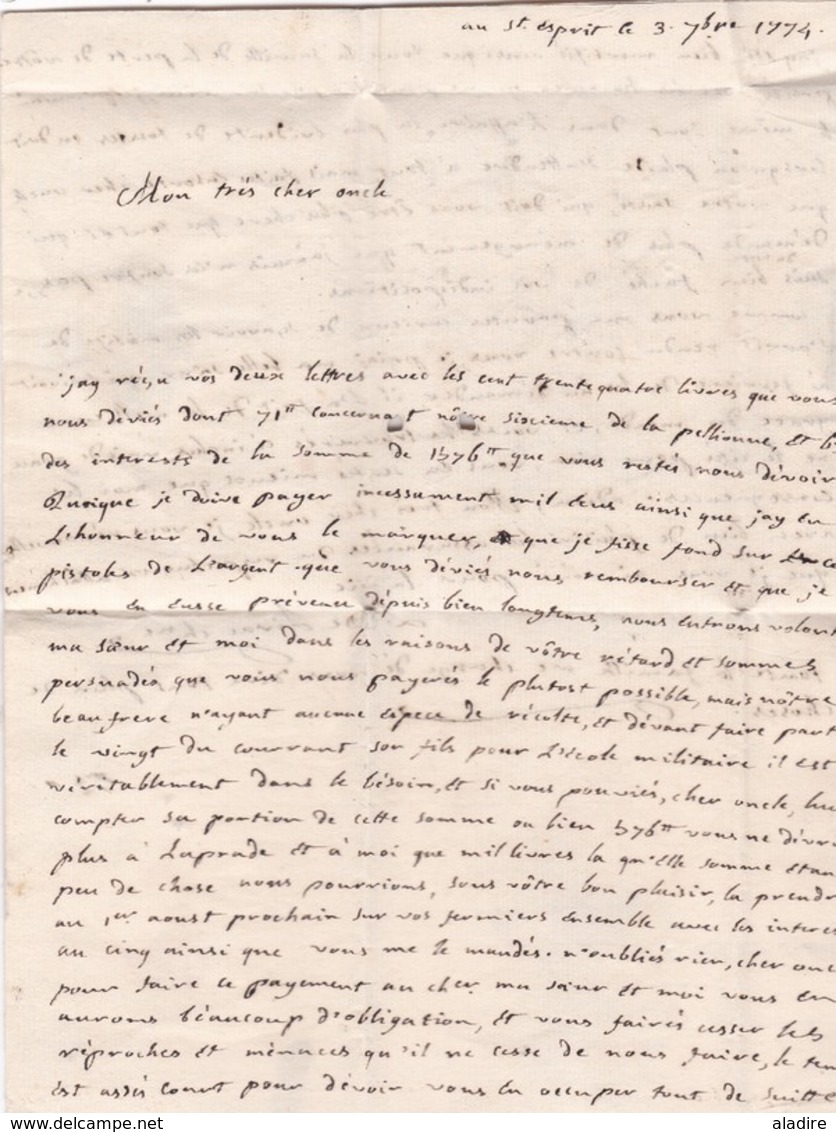 au st. esprit le 3. 7bre 1774.
Mon trés cher oncle
jay réçu vôs deux lettres avec les cent trentequatre livres que vous
nous déviés dont 71tt concernant nôtre sixcieme de la pellionne, et
des interests de la somme de 1576tt que vous restés nous dévoir
Quoique je doive payer incessament mil ecus ainsi que jay eu
L'honneur de vous le marquer, que je fisse fond sur
pistoles de L'argent que vous déviés nous rembourser et que je
vous en eusse prévenu dépuis bien longtems, nous entrons volont
ma sœur et moi dans les raisons de vôtre rétard, et sommes
persuadés que vous nous payerés le plutost possible, mais nôtre
beaufrere n'ayant aucune espece de récolte, et dévant faire part
le vingt du courrant son fils pour L'école militaire il est
véritablement dans le bésoin, et si vous pouviés, cher oncle, lui
compter sa portion de cette somme ou bien 576tt vous ne dévr
plus à Laprade et à moi que mil livres la qu'elle somme etan
peu de chose nous pourrions, sous vôtre bon plaisir, la prendr
au 1er aoust prochain sur vos fermiers ensemble avec les interes
au cinq ainsi que vous me le mandés. n'oubliés rien, cher onc
pour faire ce payement au cher. ma sœur et moi vous en
aurons béaucoup d'obligation, et vous fairés cesser les
réproches et ménaces qu'il ne cesse de nous faire, le tem
est assés court pour dévoir vous en occuper tout de suitte